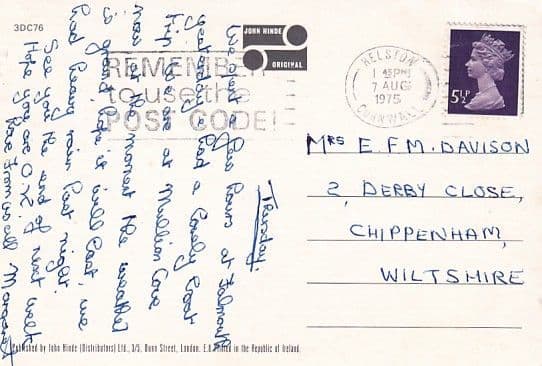 3DC76
JOHN HINDE
ORIGINAL
REMEMBER
to use the
POST CODE!
HELSTON
1 45PM
7 AUG
1975
CORNWALL
5½P
Mrs E. F. M. DAVISON
2, DERBY CLOSE,
CHIPPENHAM,
WILTSHIRE
Thursday.
We spent a few hours at Falmouth
yesterday, had a lovely boat
trip. We are at Mullion Cove
now at the moment the weather
is grand, hope it will last, we
had heavy rain last night.
See you the end of next week
Hope you are O.K.
love from us all
Published by John Hinde (Distributors) Ltd., 3/5, Dunn Street, London. E.8 Printed in the Republic of Ireland.